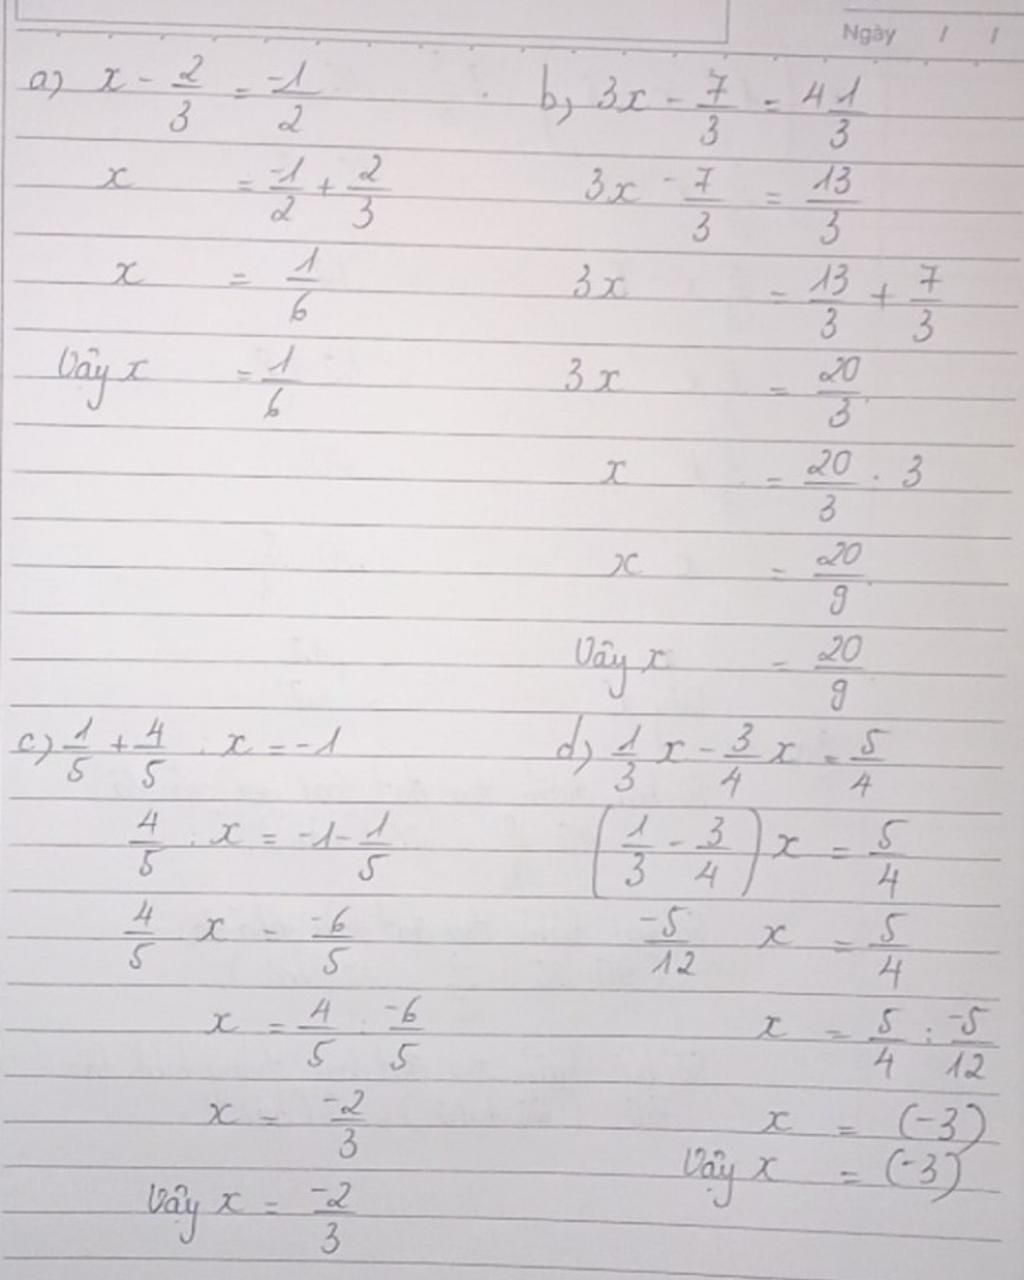 Ngày / /
a) x - 2/3 = -1/2
x = -1/2 + 2/3
x = 1/6
Vậy x = 1/6
b) 3x - 7/3 = 4 1/3
3x - 7/3 = 13/3
3x = 13/3 + 7/3
3x = 20/3
x = 20/3 . 3
x = 20/9
Vậy x = 20/9
c) 1/5 + 4/5 . x = -1
4/5 . x = -1 - 1/5
4/5 x = -6/5
x = 4/5 : -6/5
x = -2/3
Vậy x = -2/3
d) 1/3 x - 3/4 x = 5/4
(1/3 - 3/4) x = 5/4
-5/12 x = 5/4
x = 5/4 : -5/12
x = (-3)
Vậy x = (-3)